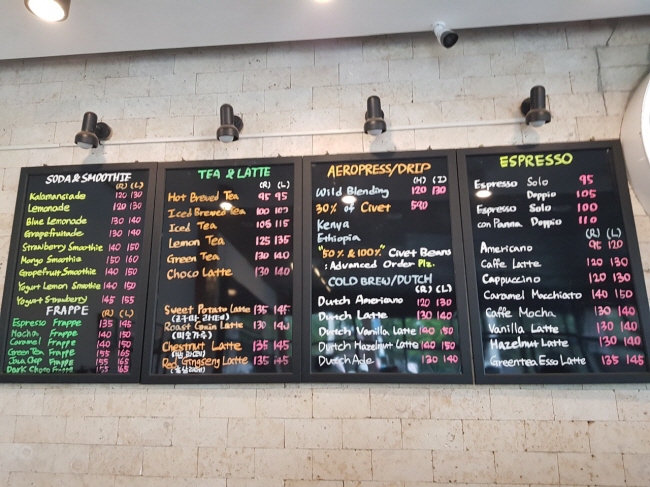 SODA & SMOOTHIE
(R) (L)
Kalamansiade 120 130
Lemonade 120 130
Blue Lemonade 130 140
Grapefruitade 130 140
Strawberry Smoothie 140 150
Mango Smoothie 150 160
Grapefruit Smoothie 140 150
Yogurt Lemon Smoothie 140 150
Yogurt Strawberry 145 155
FRAPPE (R) (L)
Espresso Frappe 135 145
Mocha Frappe 140 150
Caramel Frappe 140 150
Green Tea Frappe 155 165
Java Chip Frappe 155 165
Dark Choco Frappe 155 165
TEA & LATTE
(R) (L)
Hot Brewed Tea 95 95
Iced Brewed Tea 100 107
Iced Tea 105 115
Lemon Tea 125 135
Green Tea 130 140
Choco Latte 130 140
Sweet Potato Latte 135 145
(고구마 라떼)
Roast Grain Latte 130 140
(미숫가루)
Chestnut Latte 135 145
Red Ginseng Latte 135 145
AEROPRESS/DRIP
(H) (I)
Wild Blending 120 130
30% of Civet 590
Kenya
Ethiopia
"50% & 100%" Civet Beans
: Advanced Order Plz.
COLD BREW/DUTCH
(R) (L)
Dutch Americano 120 130
Dutch Latte 130 140
Dutch Vanilla Latte 140 150
Dutch Hazelnut Latte 140 150
Dutch Ade 130 140
ESPRESSO
Espresso Solo 95
Doppio 105
Espresso Solo 100
con Panna Doppio 110
(R) (L)
Americano 95 120
Caffe Latte 120 130
Cappuccino 120 130
Caramel Macchiato 140 150
Caffe Mocha 130 140
Vanilla Latte 130 140
Hazelnut Latte 130 140
Greentea Esso Latte 135 145